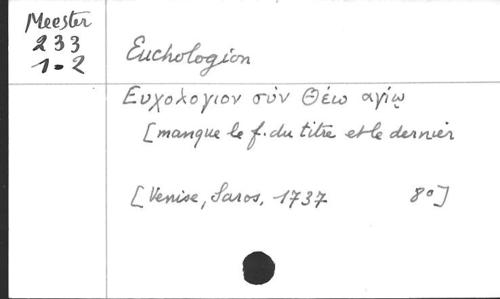 Meester
233
1-2
Euchologion
Ευχολογιον σύν Θέω αγίῳ
[manque le f. du titre et le dernier
[Venise, Saros, 1737 8°]